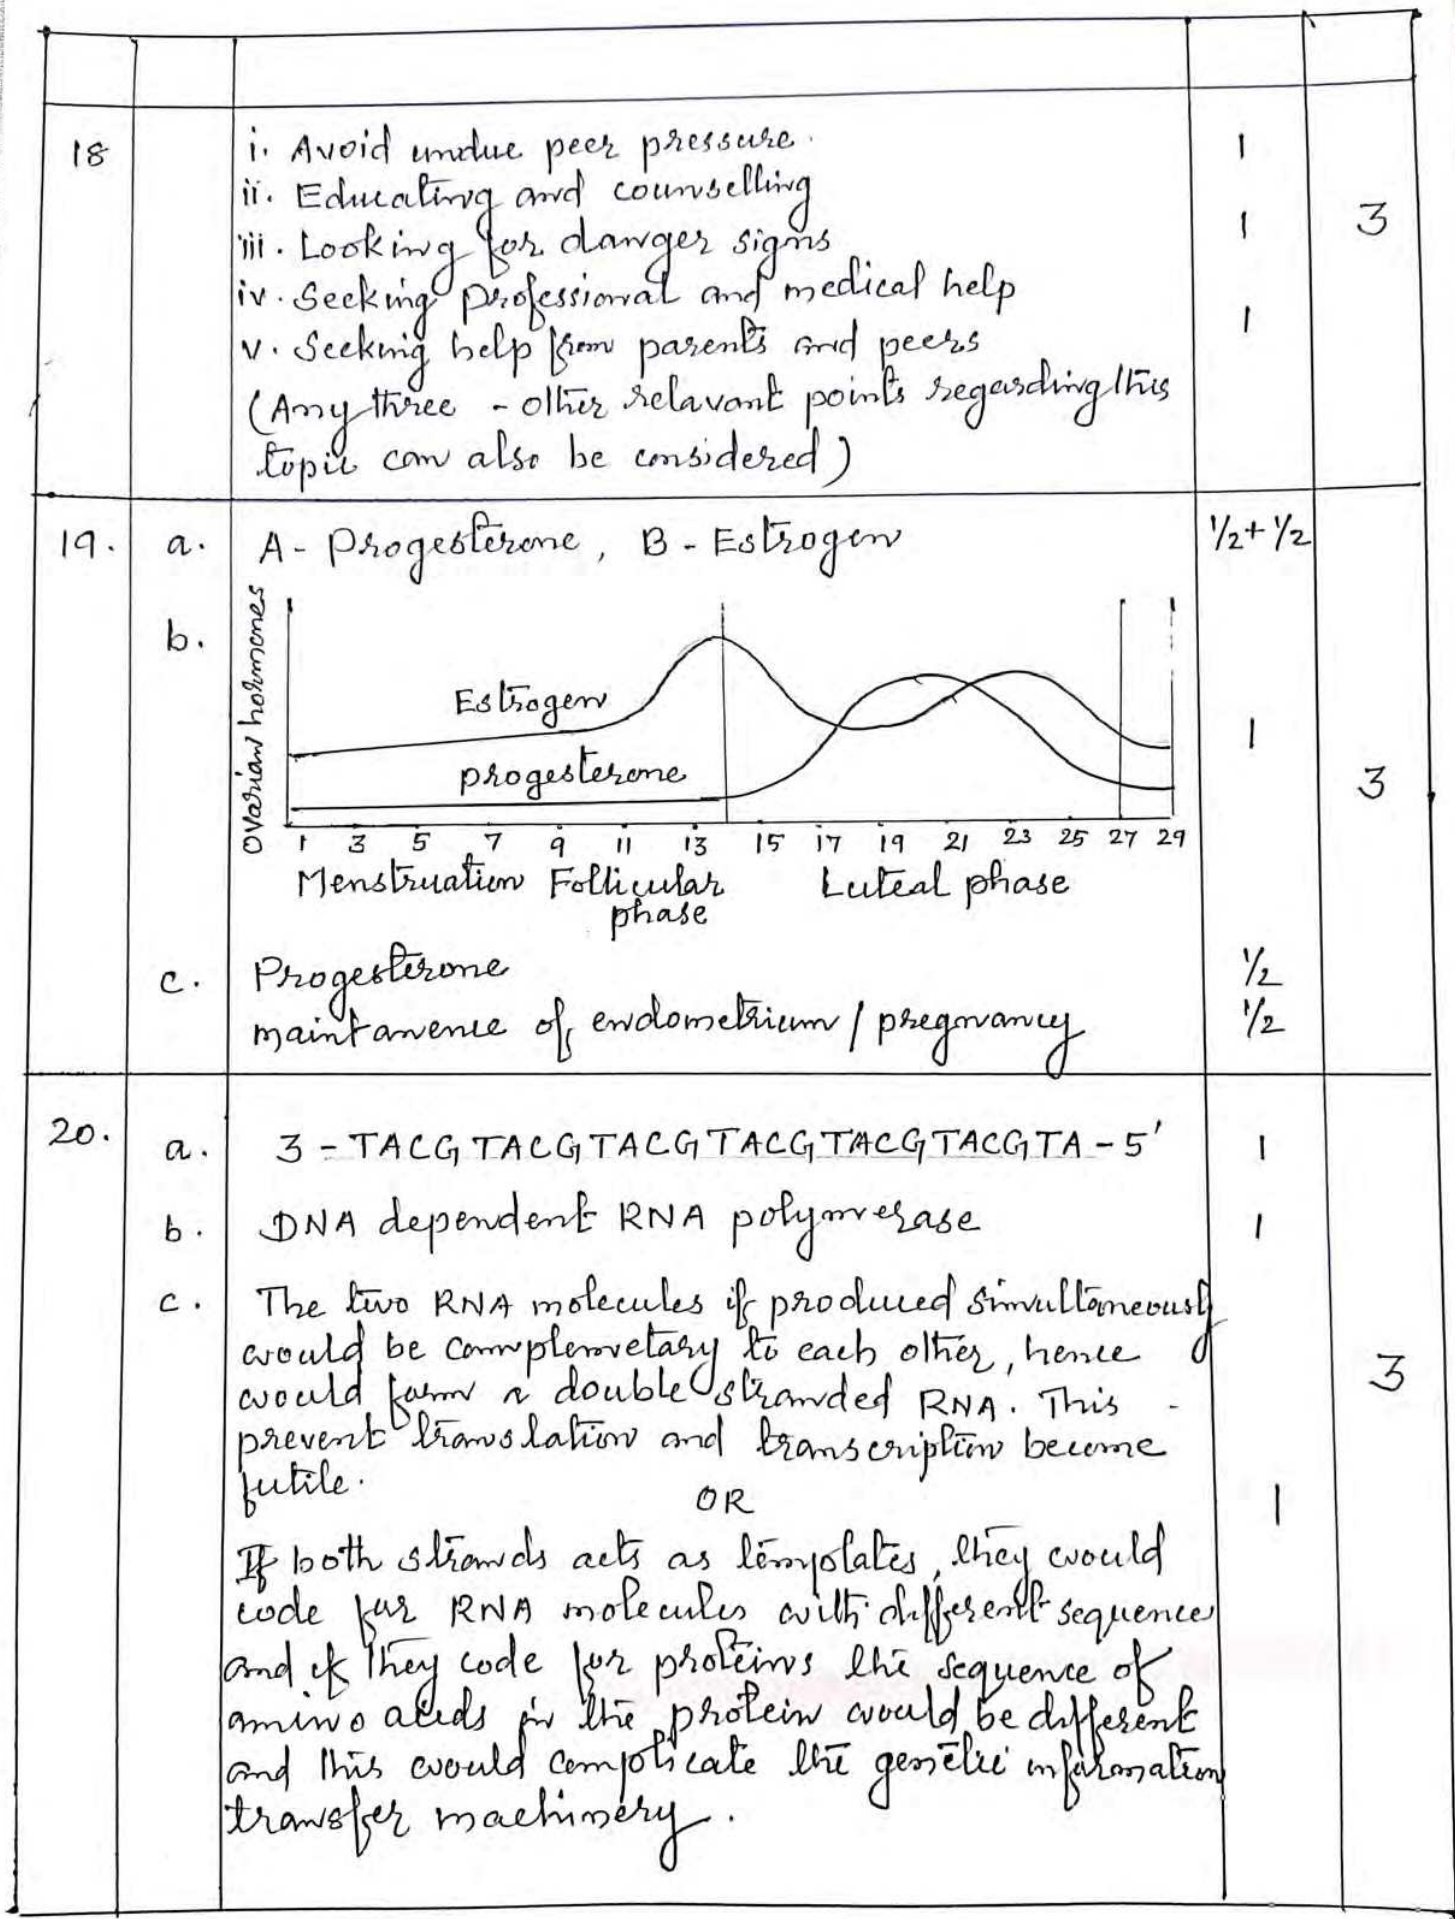 18
i. Avoid undue peer pressure. 1
ii. Educating and counselling
iii. Looking for danger signs 1 3
iv. Seeking professional and medical help
v. Seeking help from parents and peers 1
(Any three - other relavant points regarding this
topic can also be considered)
19. a. A - Progesterone, B - Estrogen 1/2 + 1/2
b.
Ovarian hormones
Estrogen 1
progesterone 3
1 3 5 7 9 11 13 15 17 19 21 23 25 27 29
Menstruation Follicular Luteal phase
phase
c. Progesterone 1/2
maintanence of endometrium / pregnancy 1/2
20. a. 3 - TACGTACGTACGTACGTACGTACGTA - 5' 1
b. DNA dependent RNA polymerase 1
c. The two RNA molecules if produced simultaneously
would be complemetary to each other, hence
would form a double stranded RNA. This 3
prevent translation and transcription become
futile.
OR 1
If both strands acts as templates, they would
code for RNA molecules with different sequence
and if they code for proteins the sequence of
amino acids in the protein would be different
and this would complicate the genetic information
transfer machinery.